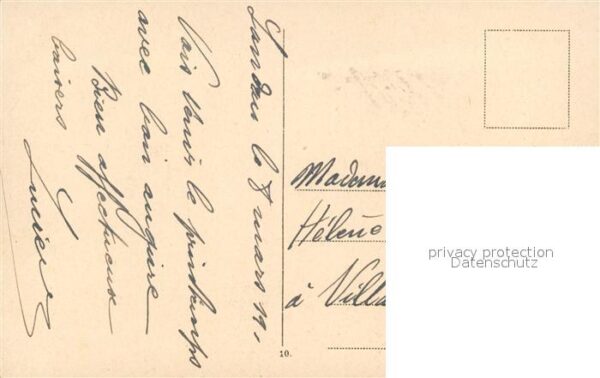 Landau le 8 mars 19.
Vois venir le printemps
avec bon augure
Bien affectueux
baisers
Lucien
Madame
Hélène
à Villa
10.
privacy protection
Datenschutz